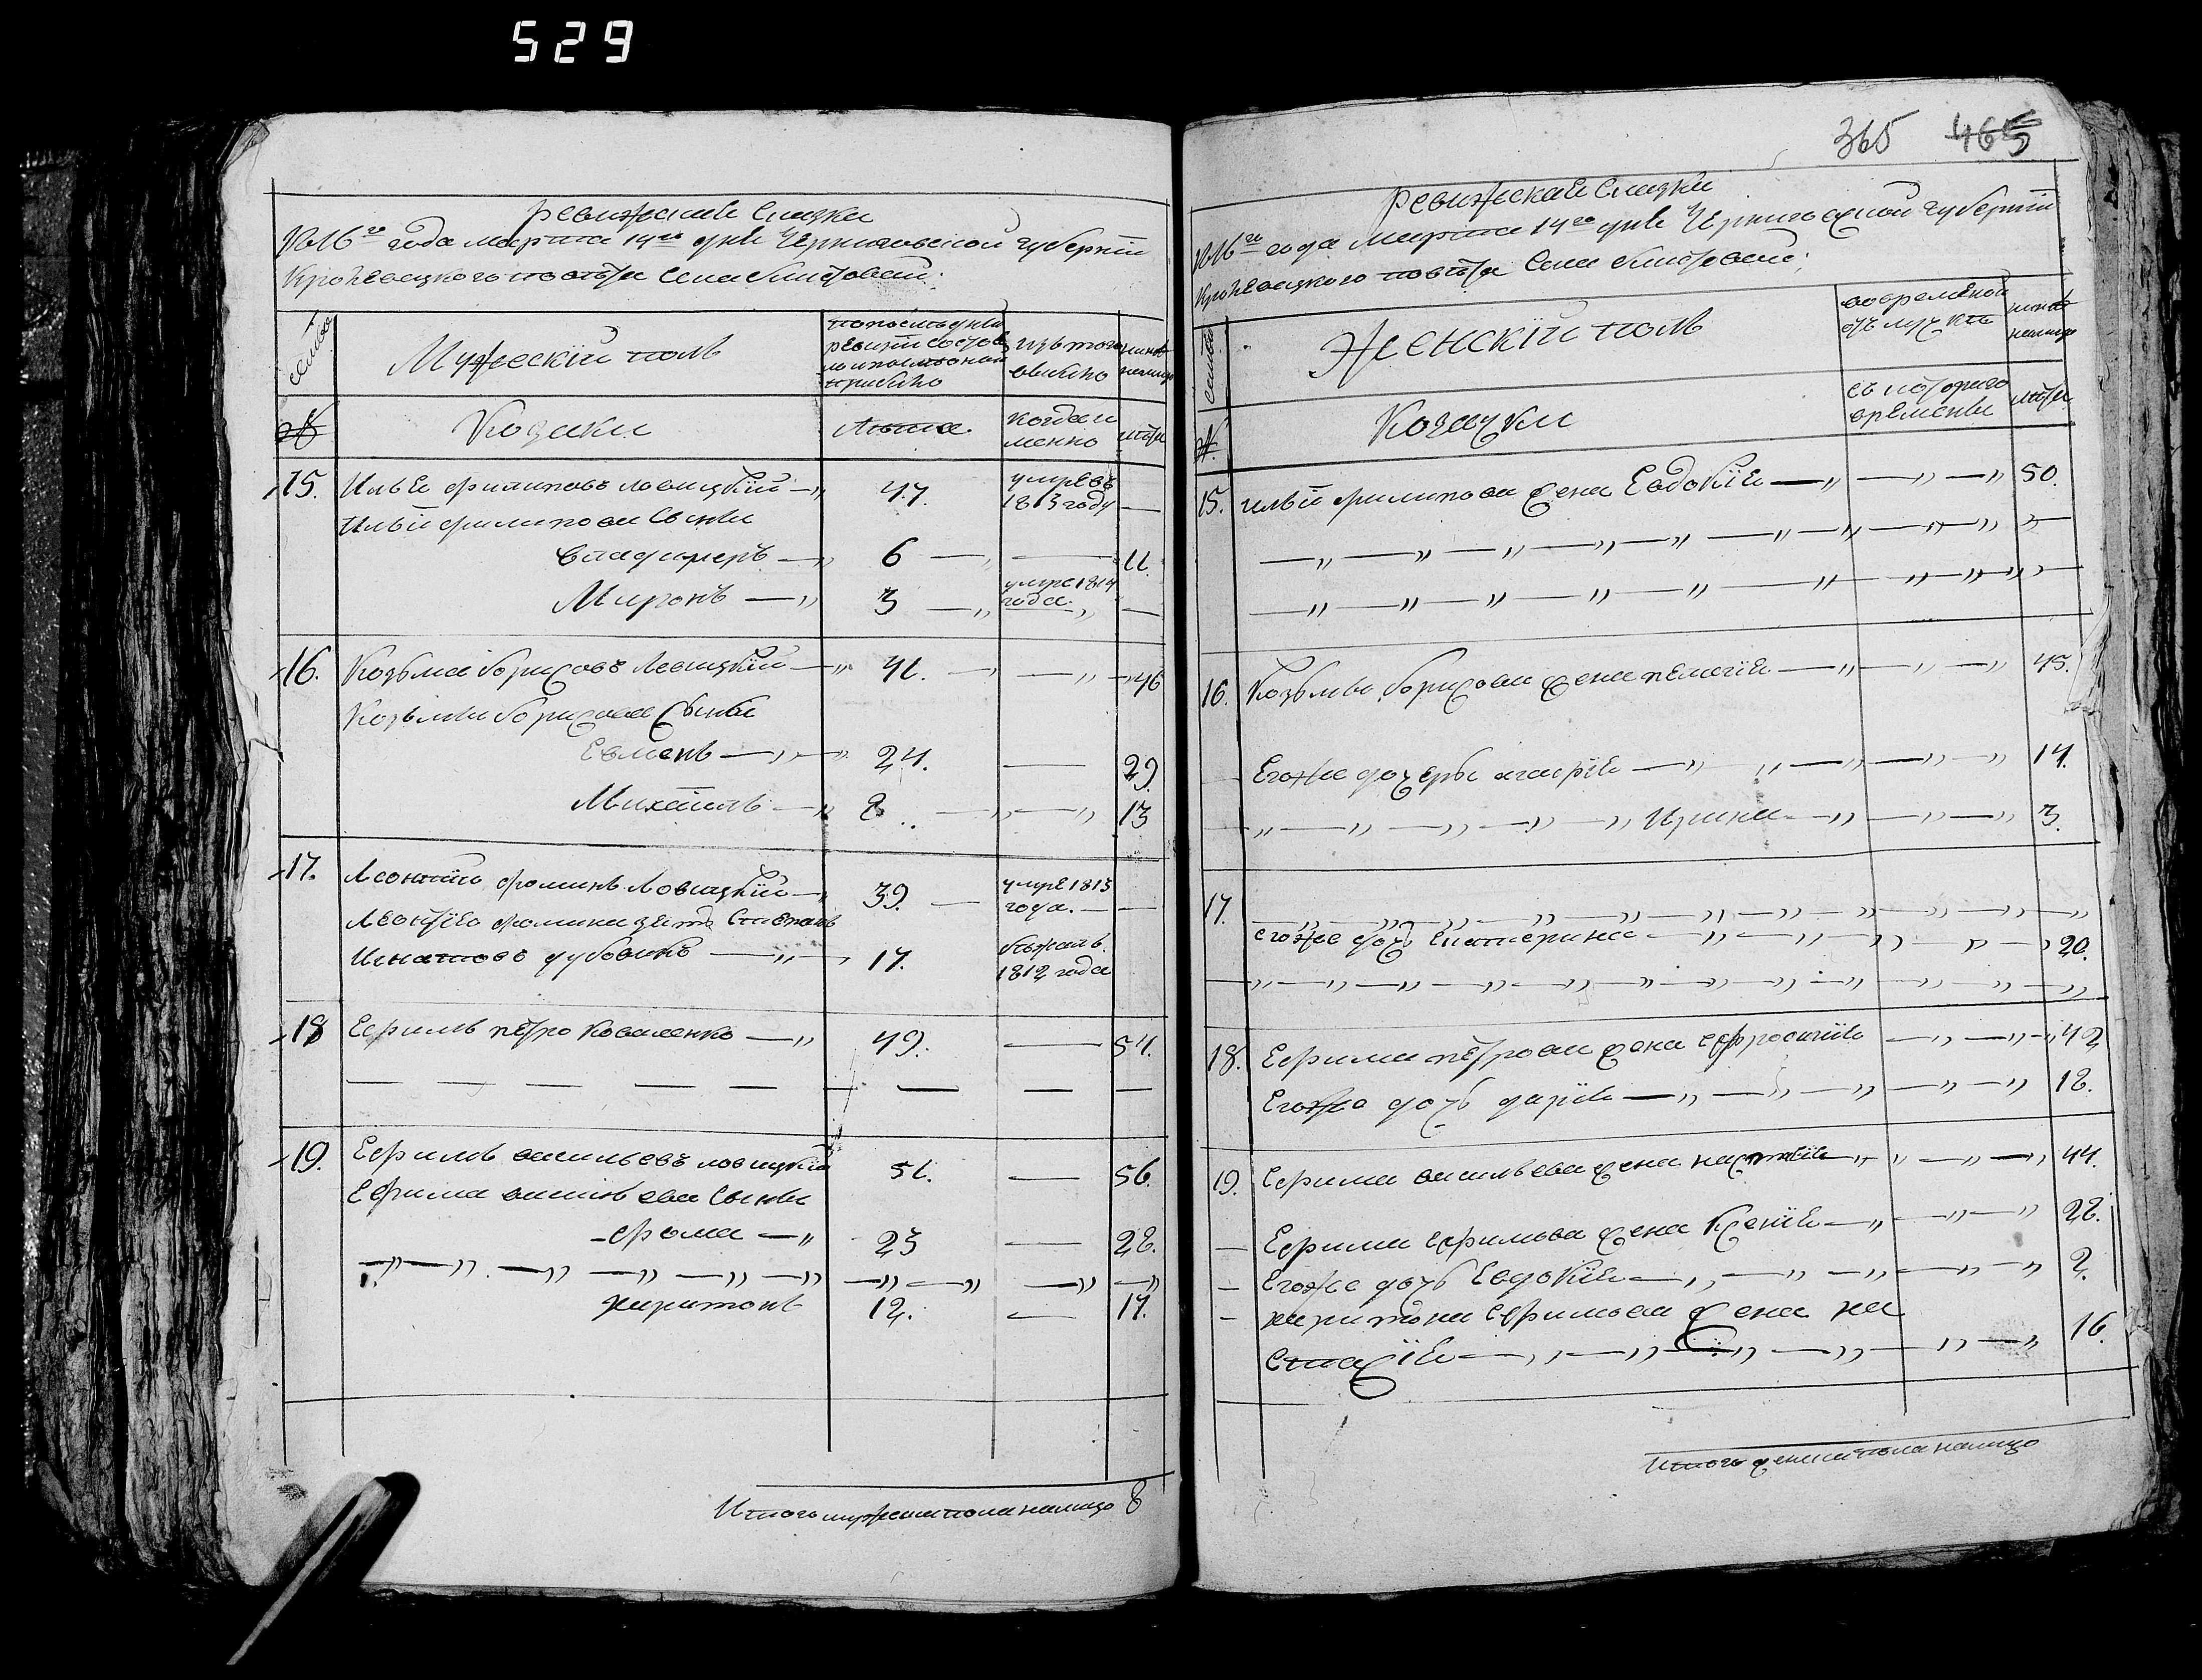 529
ревизская сказка
1816го года марта 14го дня Черниговской губернїи
Кролевецкого повѣта села
семьи
Мужескїй полъ
по последней ревизїи состояло и после оной прибыло
изъ того выбыло
ныне налицо
№
Козаки
Лѣта.
когда именно
лѣта
15. Илья филиповъ Левицкїй 47. умре въ 1813 году
Ильи филипова Сыны
владимеръ 6 11.
Миронъ 3 умре 1814 года.
16. Козьма борисовъ Левицкїй 41. 46
Козьмы борисова Сыны
Евменъ 24. 29.
Михаилъ 8 13
17. Леонтїй фоминъ Ловицкїй 39. умре 1813 года.
Леонтїя фомина зять Степанъ
Игнатовъ дубовикъ 17. бѣжалъ 1812 года
18 Ефимъ петро Коваленко 49. 54.
19. Ефимъ васильевъ ловицкїй 51. 56.
Ефима васильева Сыны
фома 23 28.
харитонъ 12. 17.
Итого мужеска пола налицо 8
365 465
ревизская Сказка
1816го года Марта 14го дня Черниговской губернїи
Кролевецкого повѣта Села
семьи
Женскїй полъ
во временной отлучкѣ
ныне налицо
№
Козачки
съ которого времени
лѣта
15. ильи филипова жена Евдокїя 50.
16. Козьмы борисова жена пелагїя 45.
Егоже дочеры агафїя 14.
Ирина 3.
17.
егоже дочь Екатерина 20.
18. Ефима петрова жена ефросинїя 49
Егоже дочь дарїя 18.
19. Ефима васильева жена настасїя 44.
Ефима ефимова жена Ксенїя 28.
Егоже дочь Евдокїя 2.
харитона ефимова жена на
стасїя 16.
Итого женска пола налицо